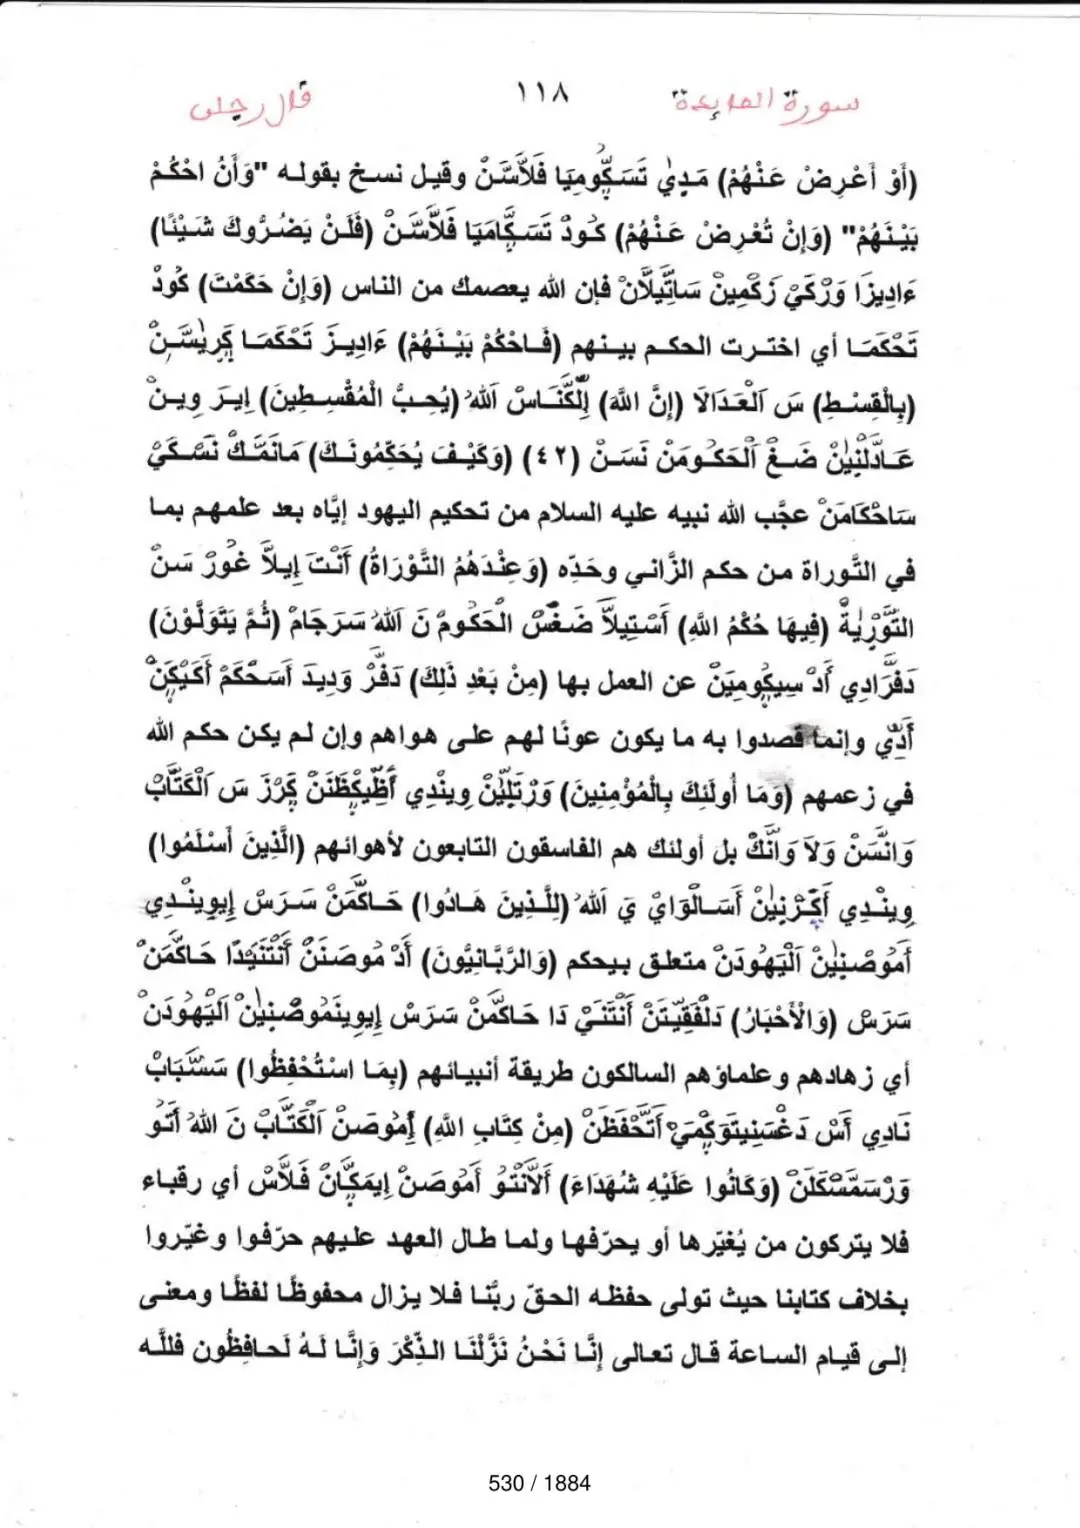 سورة المايدة ١١٨ قال رجلن
(أَوْ أَعْرِضْ عَنْهُمْ) مَدِيْ تَسَكُّومِيَا فَلَاّسَنْ وقيل نسخ بقوله "وَأَنُ احْكُمْ
بَيْنَهُمْ" (وَإِنْ تُعْرِضْ عَنْهُمْ) كُودْ تَسَكَّامَيَا فَلَاّسَنْ (فَلَنْ يَضُرُّوكَ شَيْئًا)
ءَادِيزَا وَرْكَيْ زَكْمِينْ سَاتِّيلَّانْ فإن الله يعصمك من الناس (وَإِنْ حَكَمْتَ) كُودْ
تَحْكَمَا أي اخترت الحكم بينهم (فَاحْكُمْ بَيْنَهُمْ) ءَادِيزَ تَحْكَمَا كَرِيسَّنْ
(بِالْقِسْطِ) سَ اَلْعَدَالَا (إِنَّ اللَّهَ) اِلْكَّنَاسْ اَللهْ (يُحِبُّ الْمُقْسِطِينَ) اِيرَ وِينْ
عَادَّلْنِينْ ضَغْ اَلْحَكُومَنْ نَسَنْ (٤٢) (وَكَيْفَ يُحَكِّمُونَكَ) مَانَمَّكْ نَسْكَيْ
سَاحْكَامَنْ عجَّب الله نبيه عليه السلام من تحكيم اليهود إيَّاه بعد علمهم بما
في التَّوراة من حكم الزَّاني وحَدِّه (وَعِنْدَهُمُ التَّوْرَاةُ) أَنْتَ إِيلَّا غُورْ سَنْ
التَّوْرِيةْ (فِيهَا حُكْمُ اللَّهِ) أَسْتِيلَّا ضَغْسْ الْحَكُومْ نَ اَللهْ سَرَجَامْ (ثُمَّ يَتَوَلَّوْنَ)
دَفَّرَادِي أَدْ سِيكُومِيَنْ عن العمل بها (مِنْ بَعْدِ ذَلِكَ) دَفَّرْ وَدِيدَ أَسَحْكَمْ أَكَيْكَنْ
أَدِّي وإنما قصدوا به ما يكون عونًا لهم على هواهم وإن لم يكن حكم الله
في زعمهم (وَمَا أُولَئِكَ بِالْمُؤْمِنِينَ) وَرْتَلِيِّنْ وِينْدِي أَظِّيكْظَنَنْ كَرَزْ سَ اَلْكَتَّابْ
وَانَّسَنْ وَلَا وَانَّكْ بل أولئك هم الفاسقون التابعون لأهوائهم (الَّذِينَ أَسْلَمُوا)
وِينْدِي أَكَرْنِينْ أَسَالْوَايْ يَ اَللهْ (لِلَّذِينَ هَادُوا) حَاكَّمَنْ سَرَسْ إِيوِينْدِي
أَمُوصْنِينْ اَلْيَهُودَنْ متعلق بيحكم (وَالرَّبَّانِيُّونَ) أَدْ مُوصَنَنْ أَنْتَنَيْدَا حَاكَّمَنْ
سَرَسْ (وَالْأَحْبَارُ) دَلْفَقِّيتَنْ أَنْتَنَيْ دَا حَاكَّمَنْ سَرَسْ إِيوِينَمُوصْنِينْ اَلْيَهُودَنْ
أي زهادهم وعلماؤهم السالكون طريقة أنبيائهم (بِمَا اسْتُحْفِظُوا) سَسَّبَابْ
نَادِي أَسْ دَغْسَنِيتَوَكْمَيْ أَتَّحْفَظَنْ (مِنْ كِتَابِ اللَّهِ) إِمُوصَنْ اَلْكَتَّابْ نَ اللهْ أَتُو
وَرْسَمَّسْكَلَنْ (وَكَانُوا عَلَيْهِ شُهَدَاءَ) أَلَاّنْتُو أَمُوصَنْ إِيمَكَّانْ فَلَاّسْ أي رقباء
فلا يتركون من يُغيّرها أو يحرّفها ولما طال العهد عليهم حرّفوا وغيّروا
بخلاف كتابنا حيث تولى حفظه الحقّ ربُّنا فلا يزال محفوظًا لفظًا ومعنى
إلى قيام الساعة قال تعالى إِنَّا نَحْنُ نَزَّلْنَا الذِّكْرَ وَإِنَّا لَهُ لَحافِظُون فللَّه
530 / 1884